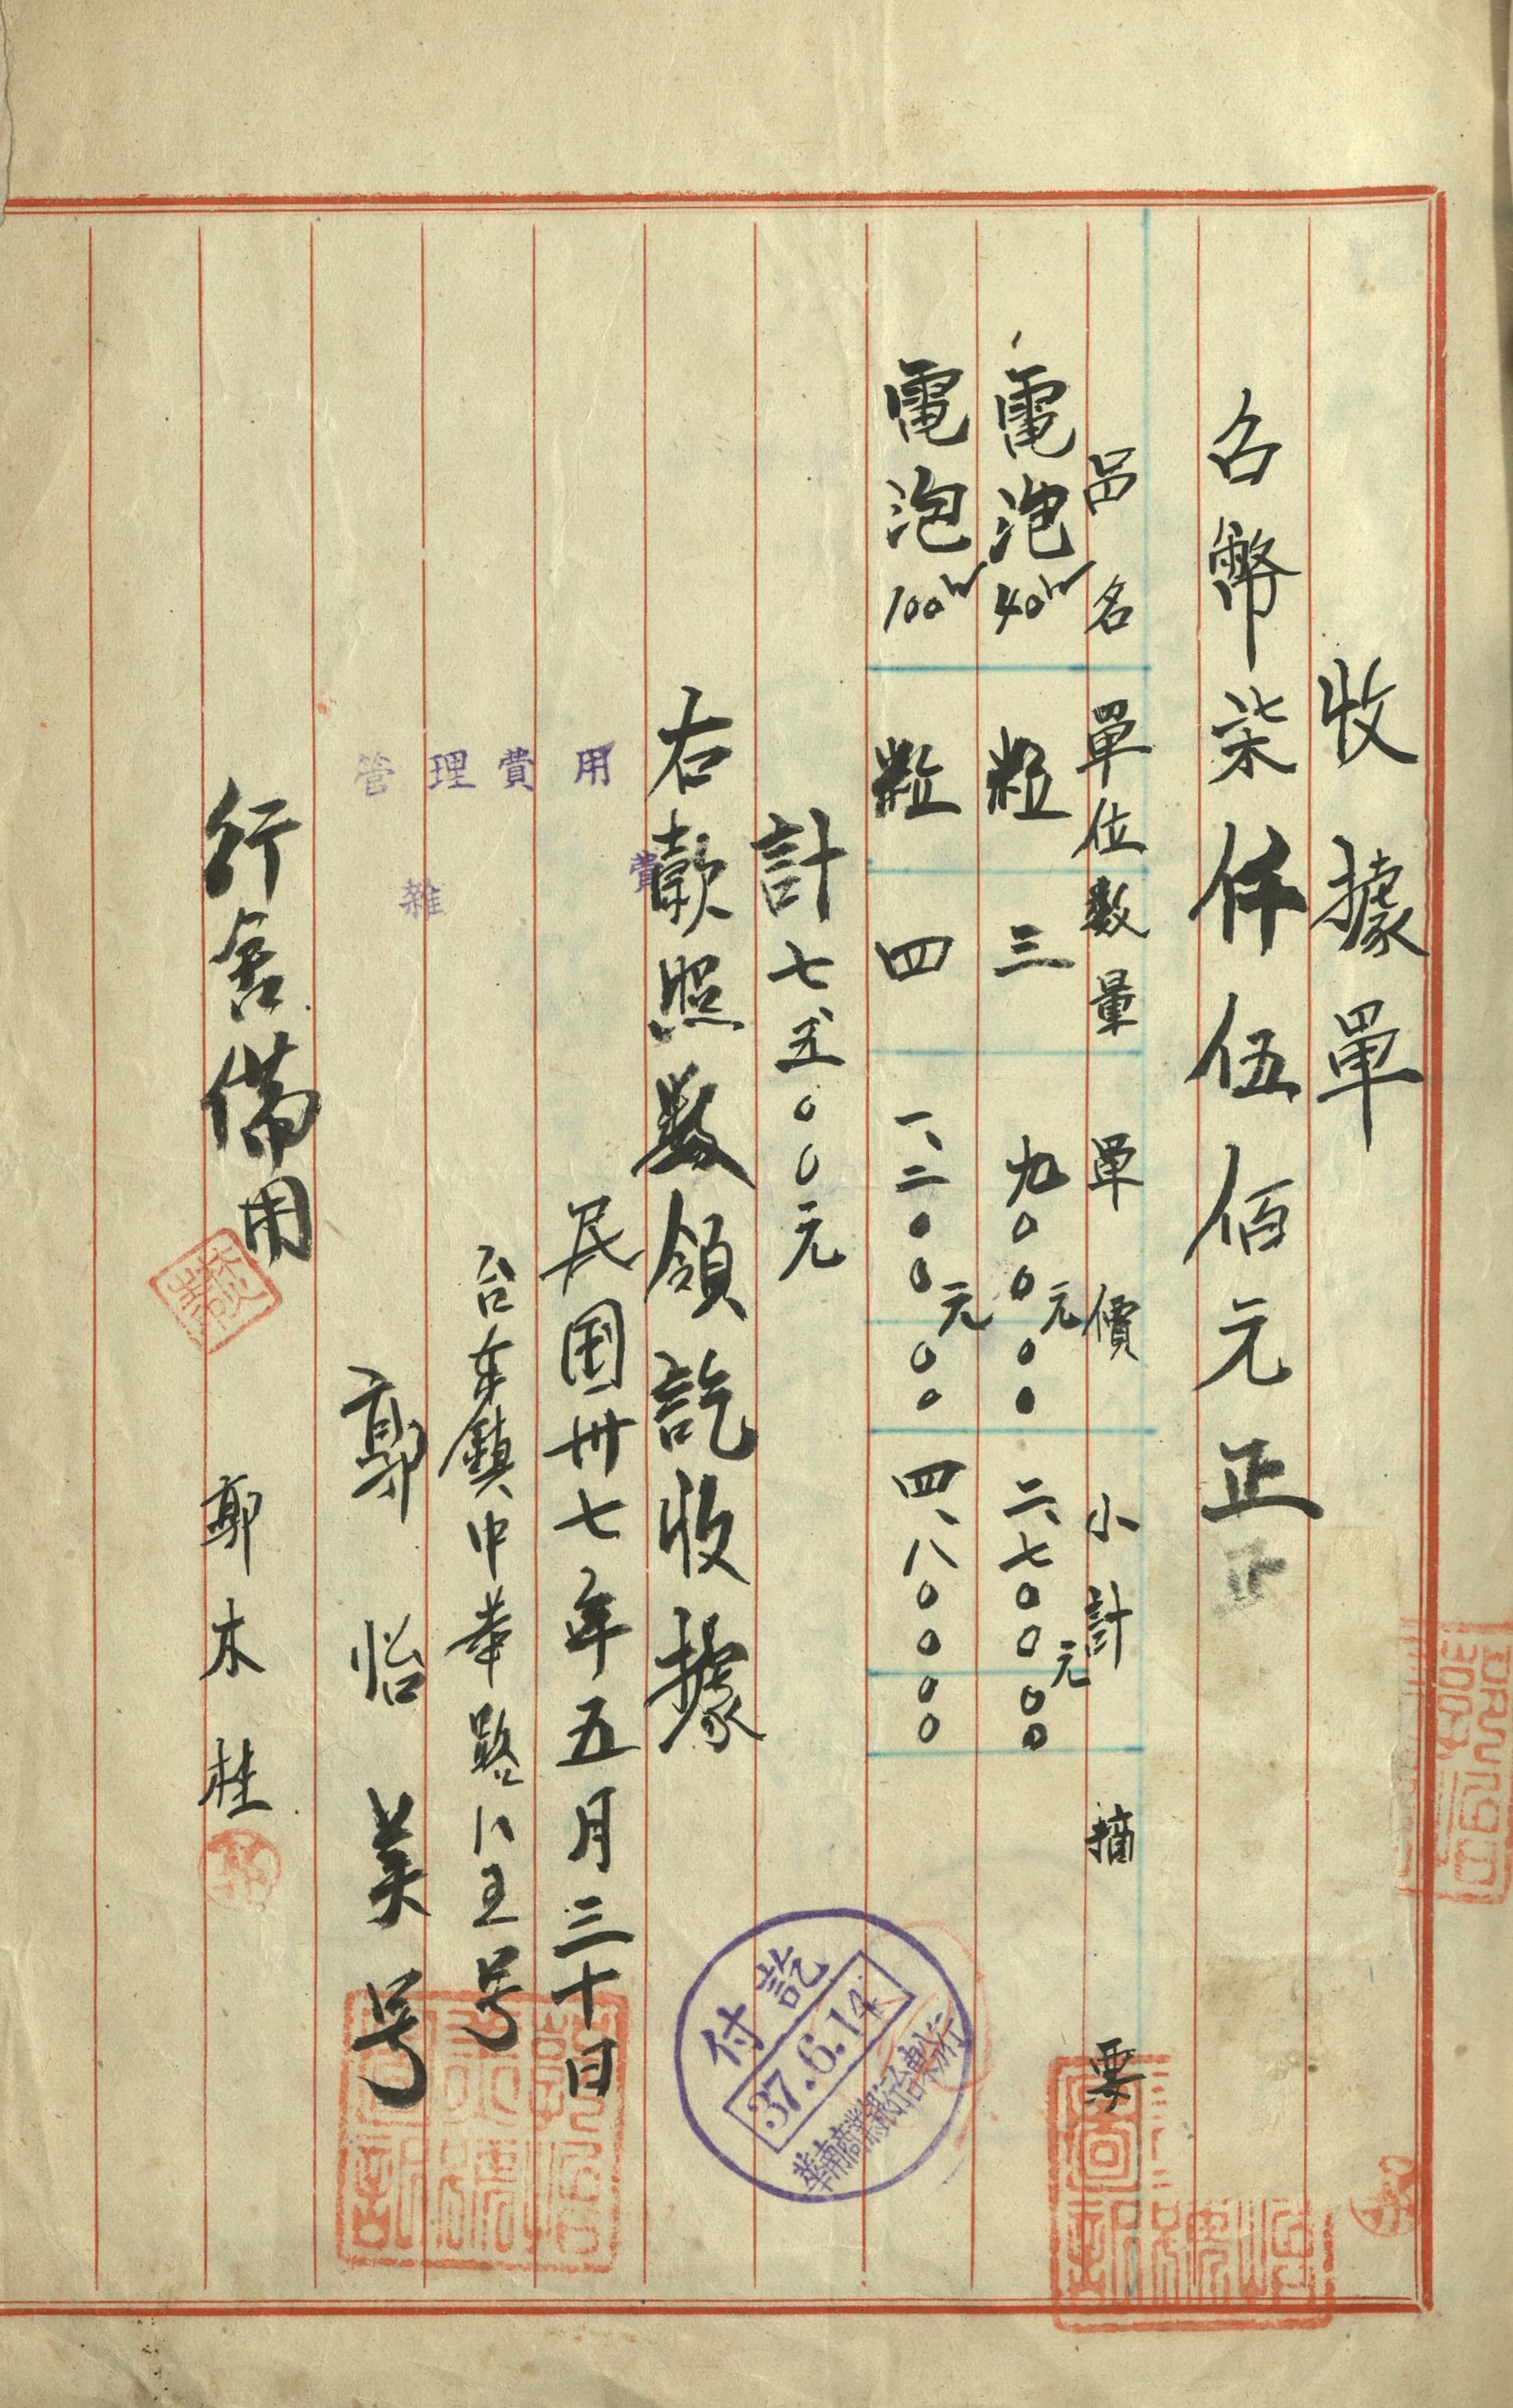 收據單
台幣柒仟伍佰元正
品名 單位 數量 單價 小計 摘要
電泡40W 粒 三 九〇〇元〇〇 二、七〇〇元〇〇
電泡100W 粒 四 一、二〇〇元〇〇 四、八〇〇〇〇
計七、五〇〇元
右歀照数領訖收據
民国卅七年五月三十日
台东鎮中華路八五号
郭怡美号
行舍備用
郭木桂
管理費用
雜費
付訖
37.6.14
華南商業銀行台東辦